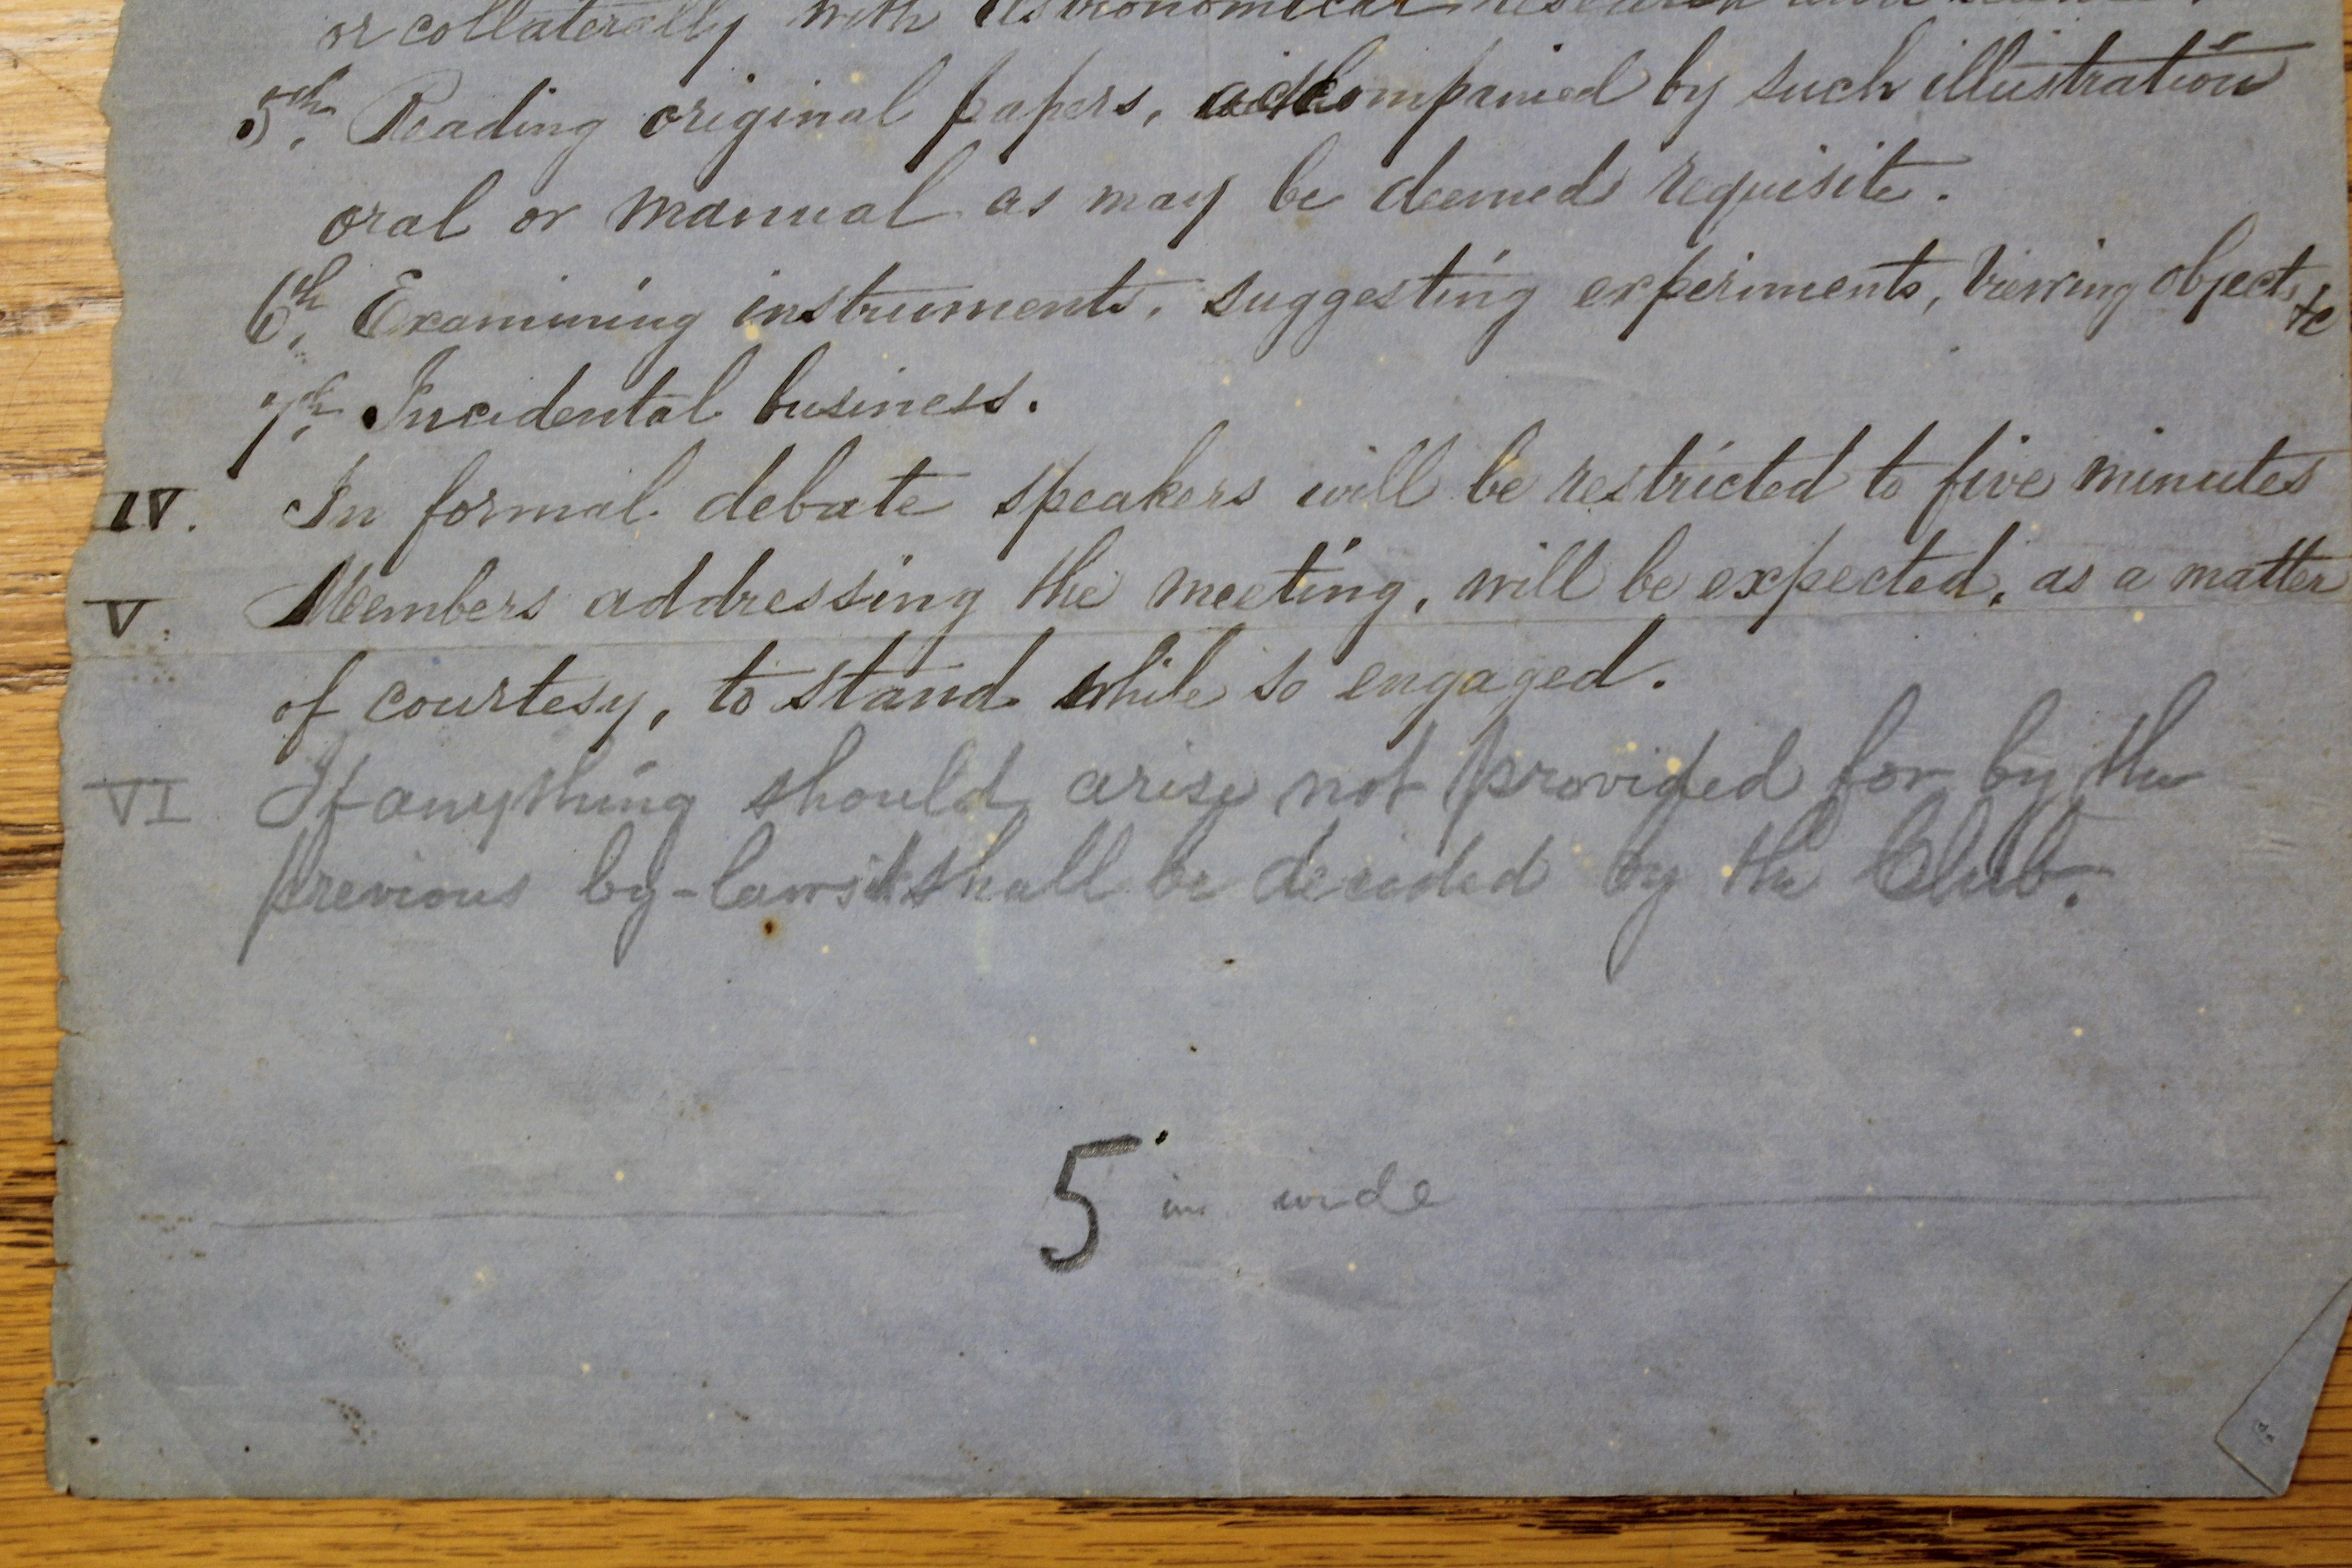 or collaterally with Astronomical research
5th. Reading original papers, accompanied by such illustration
oral or manual as may be deemed requisite.
6th. Examining instruments, suggesting experiments, viewing objects &c
7th. Incidental business.
IV. In formal debate speakers will be restricted to five minutes
V. Members addressing the meeting, will be expected, as a matter
of courtesy, to stand while so engaged.
VI If anything should arise not provided for by the
previous by-laws it shall be decided by the Club.
5 in wide